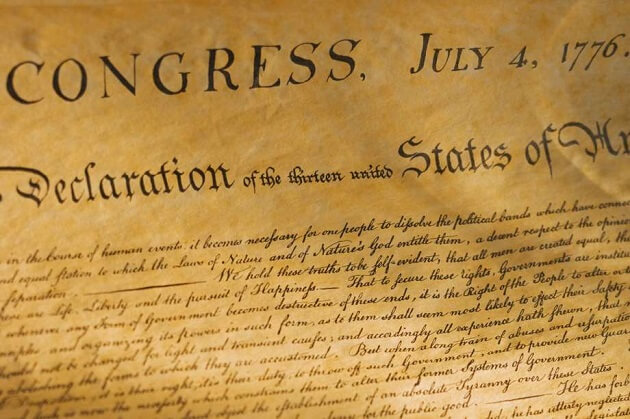 CONGRESS, JULY 4, 1776.
Declaration of the thirteen united States of
in the Course of human events, it becomes necessary for one people to dissolve the political bands which have
equal station to which the Laws of Nature and of Nature's God entitle them, a decent respect to the
separation. We hold these truths to be self-evident, that all men are created equal,
are Life, Liberty and the pursuit of Happiness. — That to secure these rights, Governments are
any Form of Government becomes destructive of these ends, it is the Right of the People to alter or
and organizing its powers in such form, as to them shall seem most likely to effect their Safety
be changed for light and transient causes; and accordingly all experience hath shewn, that
abolishing the forms to which they are accustomed. But when a long train of abuses and
it is their right, it is their duty, to throw off such Government, and to provide new
which constrains them to alter their former Systems of Government.
object the establishment of an absolute Tyranny over these States.
for the public good. He has
he has utterly neglected